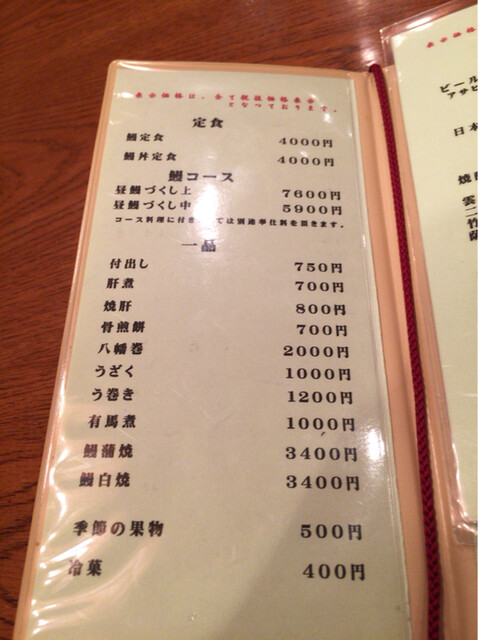 表示価格は、全て税抜価格表示
となっております。
定食
鰻定食 4000円
鰻丼定食 4000円
鰻コース
昼鰻づくし上 7600円
昼鰻づくし中 5900円
コース料理に付き ては別途奉仕料を頂きます。
一品
付出し 750円
肝煮 700円
焼肝 800円
骨煎餅 700円
八幡巻 2000円
うざく 1000円
う巻き 1200円
有馬煮 1000円
鰻蒲焼 3400円
鰻白焼 3400円
季節の果物 500円
冷菓 400円
表示価格
ビール
アサヒ
日本
焼
雲
二
竹